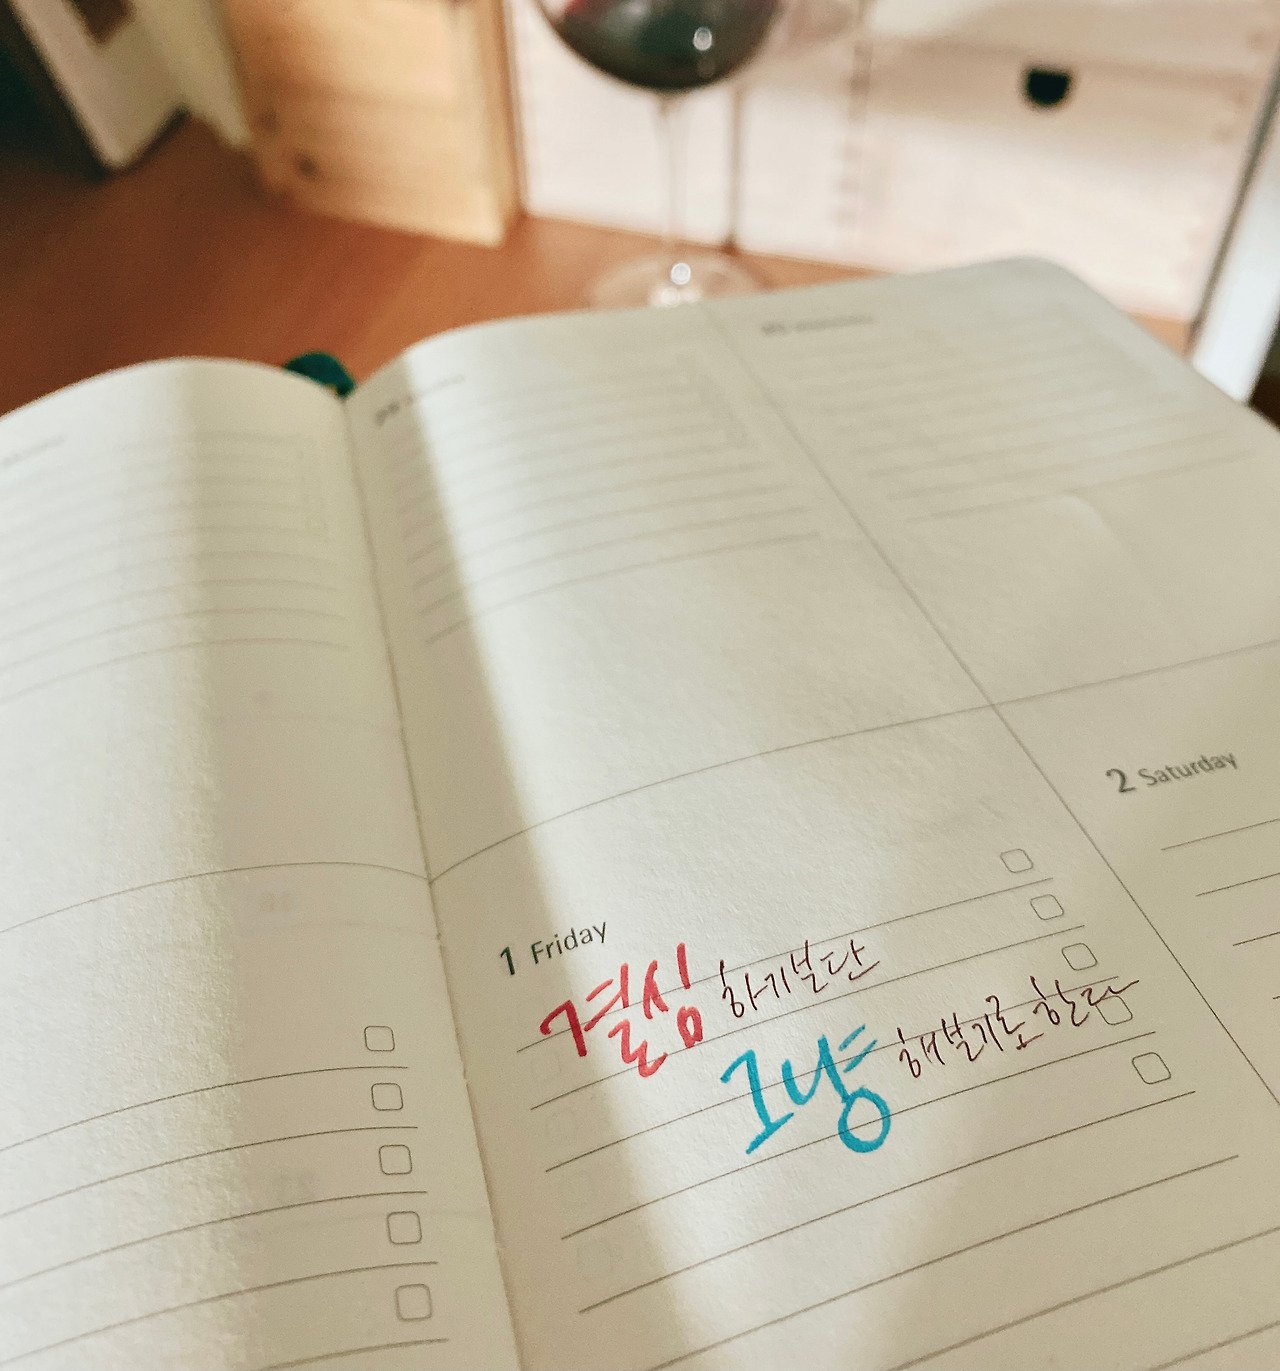 1 Friday
결심 하기보단
그냥 해보기로 한다
2 Saturday